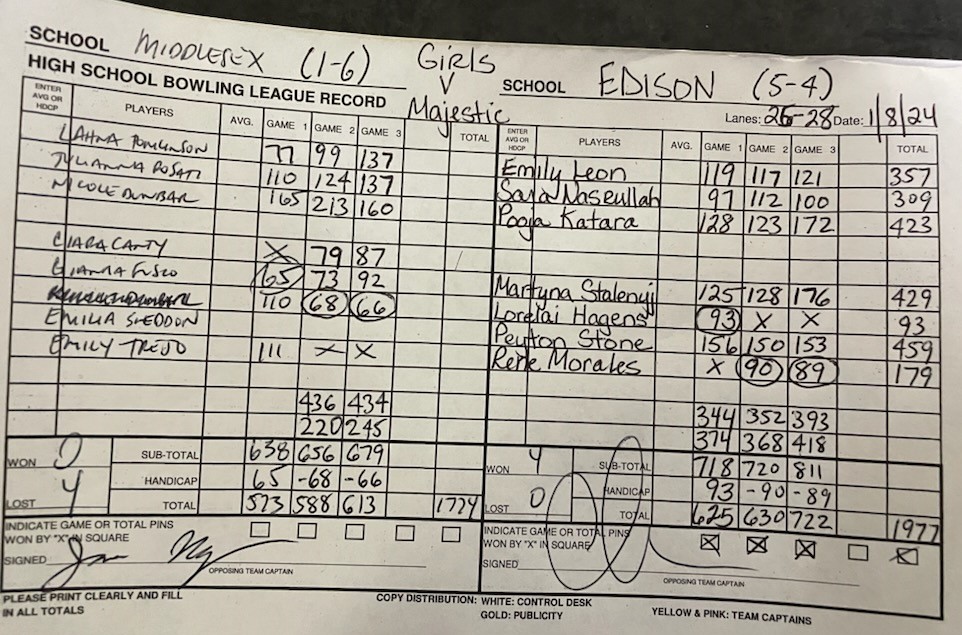 SCHOOL MIDDLESEX (1-6) GIRLS V Majestic SCHOOL EDISON (5-4)
HIGH SCHOOL BOWLING LEAGUE RECORD Lanes: 26-28 Date: 1/8/24
ENTER AVG OR HDCP PLAYERS AVG. GAME 1 GAME 2 GAME 3 TOTAL ENTER AVG OR HDCP PLAYERS AVG. GAME 1 GAME 2 GAME 3 TOTAL
LAHNA TOMLINSON 77 99 137 Emily Leon 119 117 121 357
JULIANNA ROSATI 110 124 137 Saja Naseullah 97 112 100 309
NICOLE DUNBAR 165 213 160 Pooja Katara 128 123 172 423
CIARA CANTY X 79 87
GIANNA FUSCO 65 73 92 Martyna Stalenyj 125 128 176 429
110 68 66 Lorelai Hagens 93 X X 93
EMILIA SHEDDON Peyton Stone 156 150 153 459
EMILY TREJO 111 X X Rene Morales X 90 89 179
436 434 344 352 393
220 245 374 368 418
WON 0 SUB-TOTAL 638 656 679 WON 4 SUB-TOTAL 718 720 811
HANDICAP 65 -68 -66 HANDICAP 93 -90 -89
LOST 4 TOTAL 573 588 613 1774 LOST 0 TOTAL 625 630 722 1977
INDICATE GAME OR TOTAL PINS INDICATE GAME OR TOTAL PINS
WON BY "X" IN SQUARE WON BY "X" IN SQUARE X X X X
SIGNED SIGNED
OPPOSING TEAM CAPTAIN OPPOSING TEAM CAPTAIN
PLEASE PRINT CLEARLY AND FILL COPY DISTRIBUTION: WHITE: CONTROL DESK YELLOW & PINK: TEAM CAPTAINS
IN ALL TOTALS GOLD: PUBLICITY